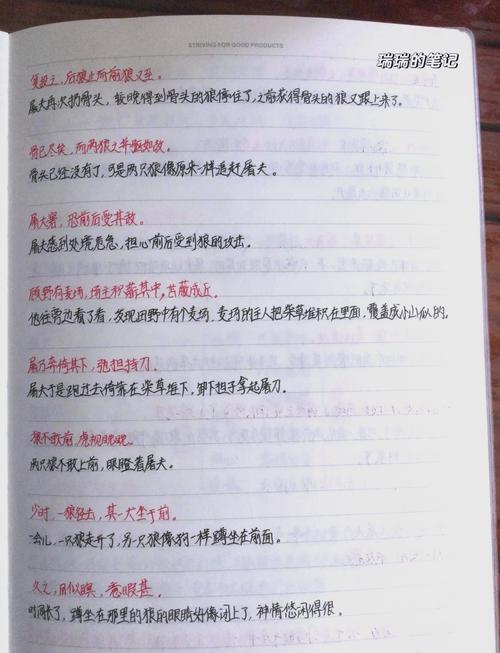 STRIVING FOR GOOD PRODUCTS
瑞瑞的笔记
复投之，后狼止而前狼又至。
屠夫再次扔骨头，较晚得到骨头的狼停住了，之前获得骨头的狼又跟上来了。
骨已尽矣，而两狼之并驱如故。
骨头已经没有了，可是两只狼像原来一样追赶屠夫。
屠大窘，恐前后受其敌。
屠夫感到处境危急，担心前后受到狼的攻击。
顾野有麦场，场主积薪其中，苫蔽成丘。
他往旁边看了看，发现田野中有个麦场，麦场的主人把柴草堆积在里面，覆盖成小山似的。
屠乃奔倚其下，弛担持刀。
屠夫于是跑过去倚靠在柴草堆下，卸下担子拿起屠刀。
狼不敢前，虎视眈眈。
两只狼不敢上前，眼瞪着屠夫。
少时，一狼径去，其一犬坐于前。
一会儿，一只狼走开了，另一只狼像狗一样蹲坐在前面。
久之，目似瞑，意暇甚。
时间长了，蹲坐在那里的狼的眼睛好像闭上了，神情悠闲得很。